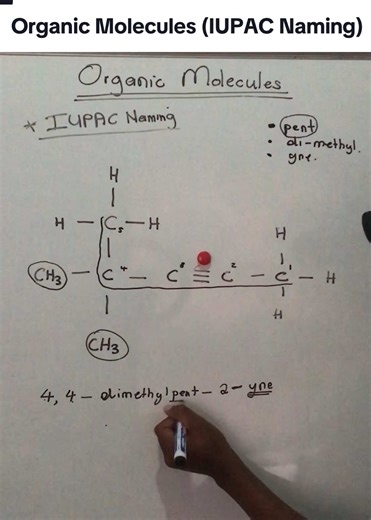 Organic Molecules (IUPAC Naming)
Organic Molecules
* IUPAC Naming
• pent
• di-methyl.
• yne.
H
|
H — C₅ — H
|
H
|
CH₃ — C⁴ — C³ ≡ C² — C¹ — H
|
H
|
CH₃
4, 4 – dimethylpent – 2 – yne